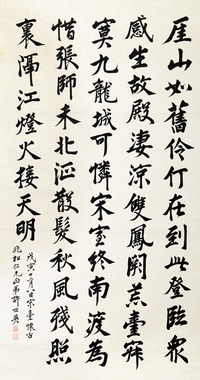 厓山如舊伶仃在到此登臨衆
感生故殿淒涼雙鳳闕荒臺寂
寞九龍城可憐宋室終南渡為
惜張師未北征散髮秋風殘照
裏隔江燈火接天明
戊寅十月八日宋臺懷古
兆松仁兄正弟許世英